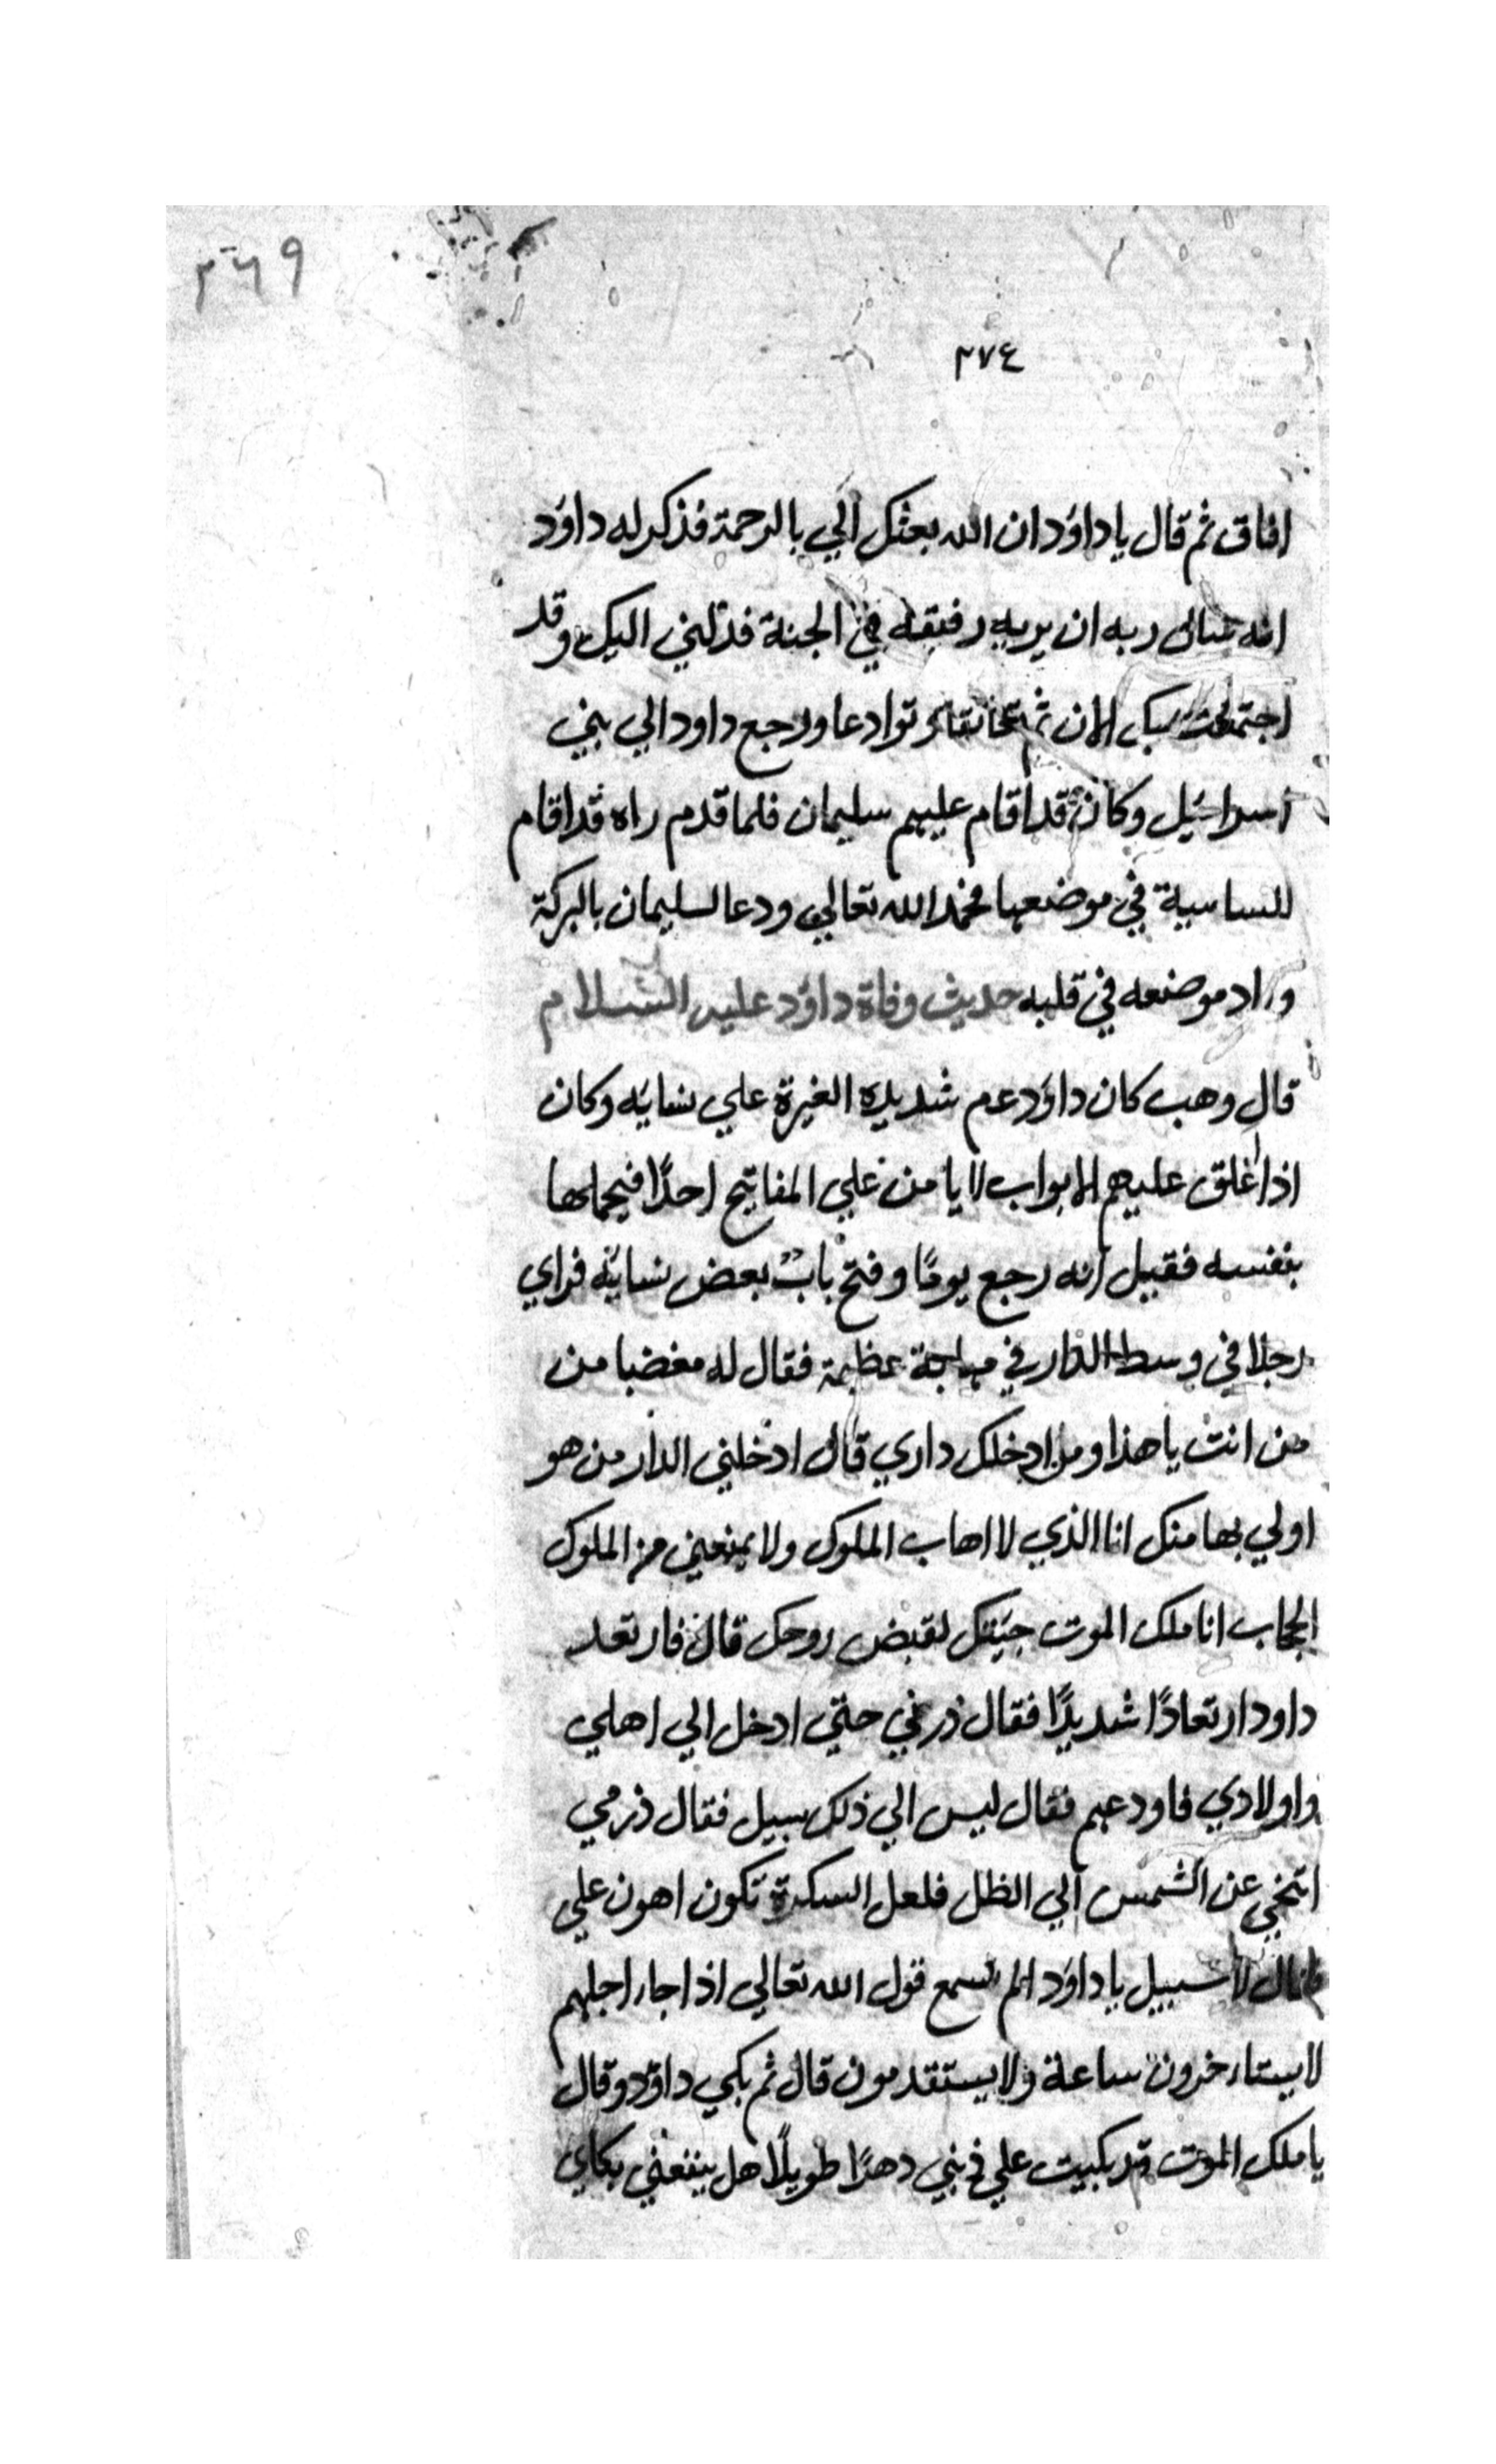 ٣٦٩
٢٧٤
افاق ثم قال يا داوَد ان الله بعثك الي بالرحمة فذكر له داوَد
انه سال ربه ان يريه رفيقه في الجنة فدلني اليك وقد
اجتمعت بك الان ثم تعانقا وتوادعا ورجع داود الي بني
اسرائيل وكان قد اقام عليهم سليمان فلما قدم راه قد اقام
السياسية في موضعها فحمد الله تعالي ودعا لسليمان بالبركة
وزاد موضعه في قلبه حديث وفاة داوَد عليه السلام
قال وهب كان داوَد عم شديد الغيرة علي نسايَه وكان
اذا اغلق عليهم الابواب لا يامن علي المفاتيح احدًا فيحملها
بنفسه فقيل انه رجع يومًا وفتح باب بعض نسايَه فراي
رجلا في وسط الدار في بهجة عظيمة فقال له مغضبا من
من انت يا هذا ومن ادخلك داري قال ادخلني الدار من هو
اولي بها منك انا الذي لا اهاب الملوك ولا يمنعني من الملوك
الحجاب انا ملك الموت جيَتك لقبض روحك قال فارتعد
داود ارتعادًا شديدًا فقال ذرني حتي ادخل الي اهلي
واولادي فاودعهم فقال ليس الي ذلك سبيل فقال ذرني
اتنحي عن الشمس الي الظل فلعل السكرة تكون اهون علي
فقال لا سبيل يا داوَد الم تسمع قول الله تعالي اذا جاء اجلهم
لا يستاءخرون ساعة ولا يستقدمون قال ثم بكي داوَد وقال
يا ملك الموت قد بكيت علي ذنبي دهرًا طويلًا هل ينفعني بكاي